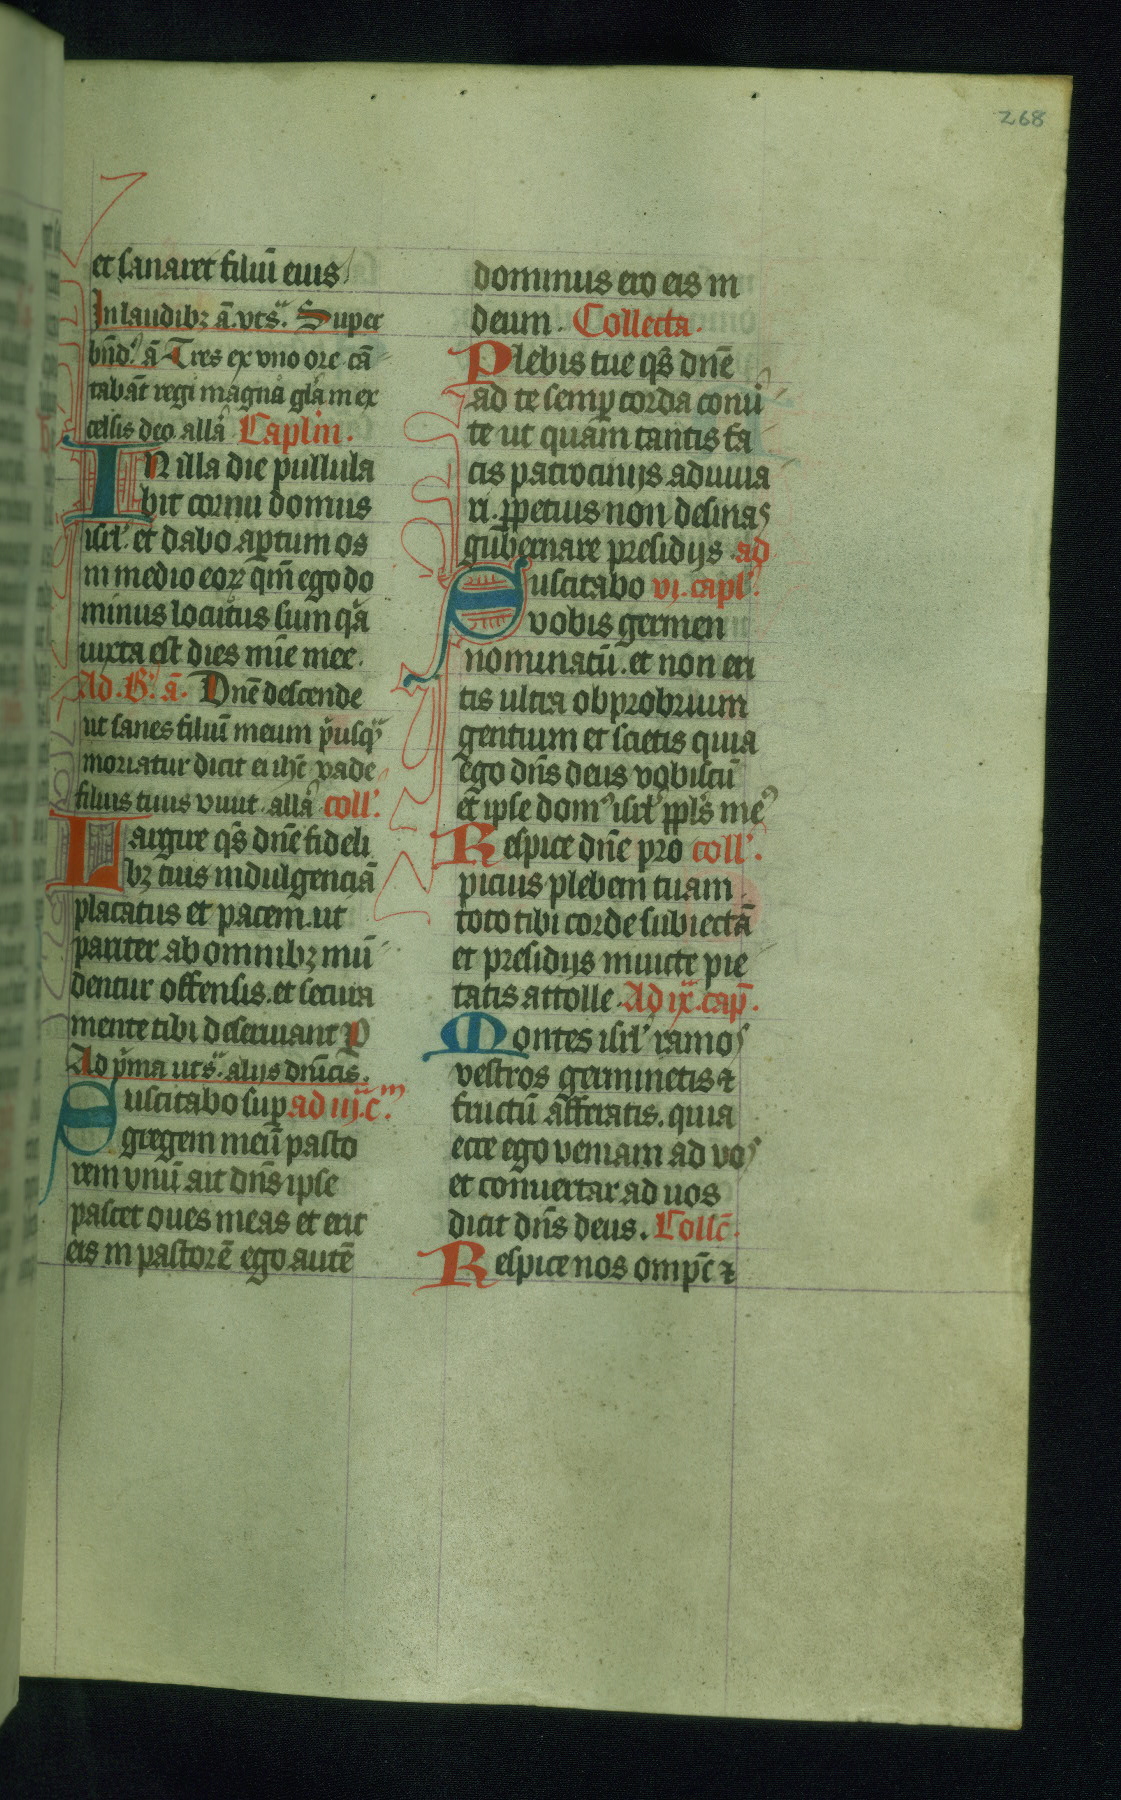 268
et sanaret filiū eius
In laudibꝫ ā. vts̄. Super
bn̄d. ā Tres ex vno ore cā
tabāt regi magnā glām ex
celsis deo allā Caplm̄.
IN illa die pullula
bit cornu domus
isrl̄. et dabo aptum os
in medio eoꝝ qm̄ ego do
minus locutus sum q̄a
iuxta est dies mīe mee.
Ad. B. ā. Dn̄e descende
ut sanes filiū meum p̄usq̄
moriatur dicit ei ihc̄ vade
filius tuus viuit. allā coll'.
Largire qs̄ dn̄e fideli
bꝫ tuis indulgenciā
placatus et pacem. ut
pariter ab omnibꝫ mū
dentur offensis. et secura
mente tibi deseruiant P
Ad p̄ma uts̄. alijs dn̄icis.
Suscitabo sup ad iij. c.m
gregem meū pasto
rem vnū ait dn̄s ipse
pascet oues meas et erit
eis in pastorē ego autē
dominus ero eis in
deum. Collecta.
Plebis tue qs̄ dn̄e
ad te semp corda conū
te ut quam tantis fa
cis patrocinijs adiuua
ri. ꝑpetuis non desinas
gubernare presidijs. ad
Suscitabo vi. capl'.
vobis germen
nominatū. et non eri
tis ultra obprobrium
gentium et scietis quia
ego dn̄s deus vobiscū
et ipse dom' isrl' ppl's me'
Respice dn̄e pro coll'.
picius plebem tuam
toto tibi corde subiectā
et presidijs inuicte pie
tatis attolle. Ad ix. cap̄.
Montes isrl' ramos
vestros germinetis ⁊
fructū afferatis. quia
ecce ego veniam ad vos
et conuertar ad uos
dicit dn̄s deus. Collc̄.
Respice nos omp̄c ⁊